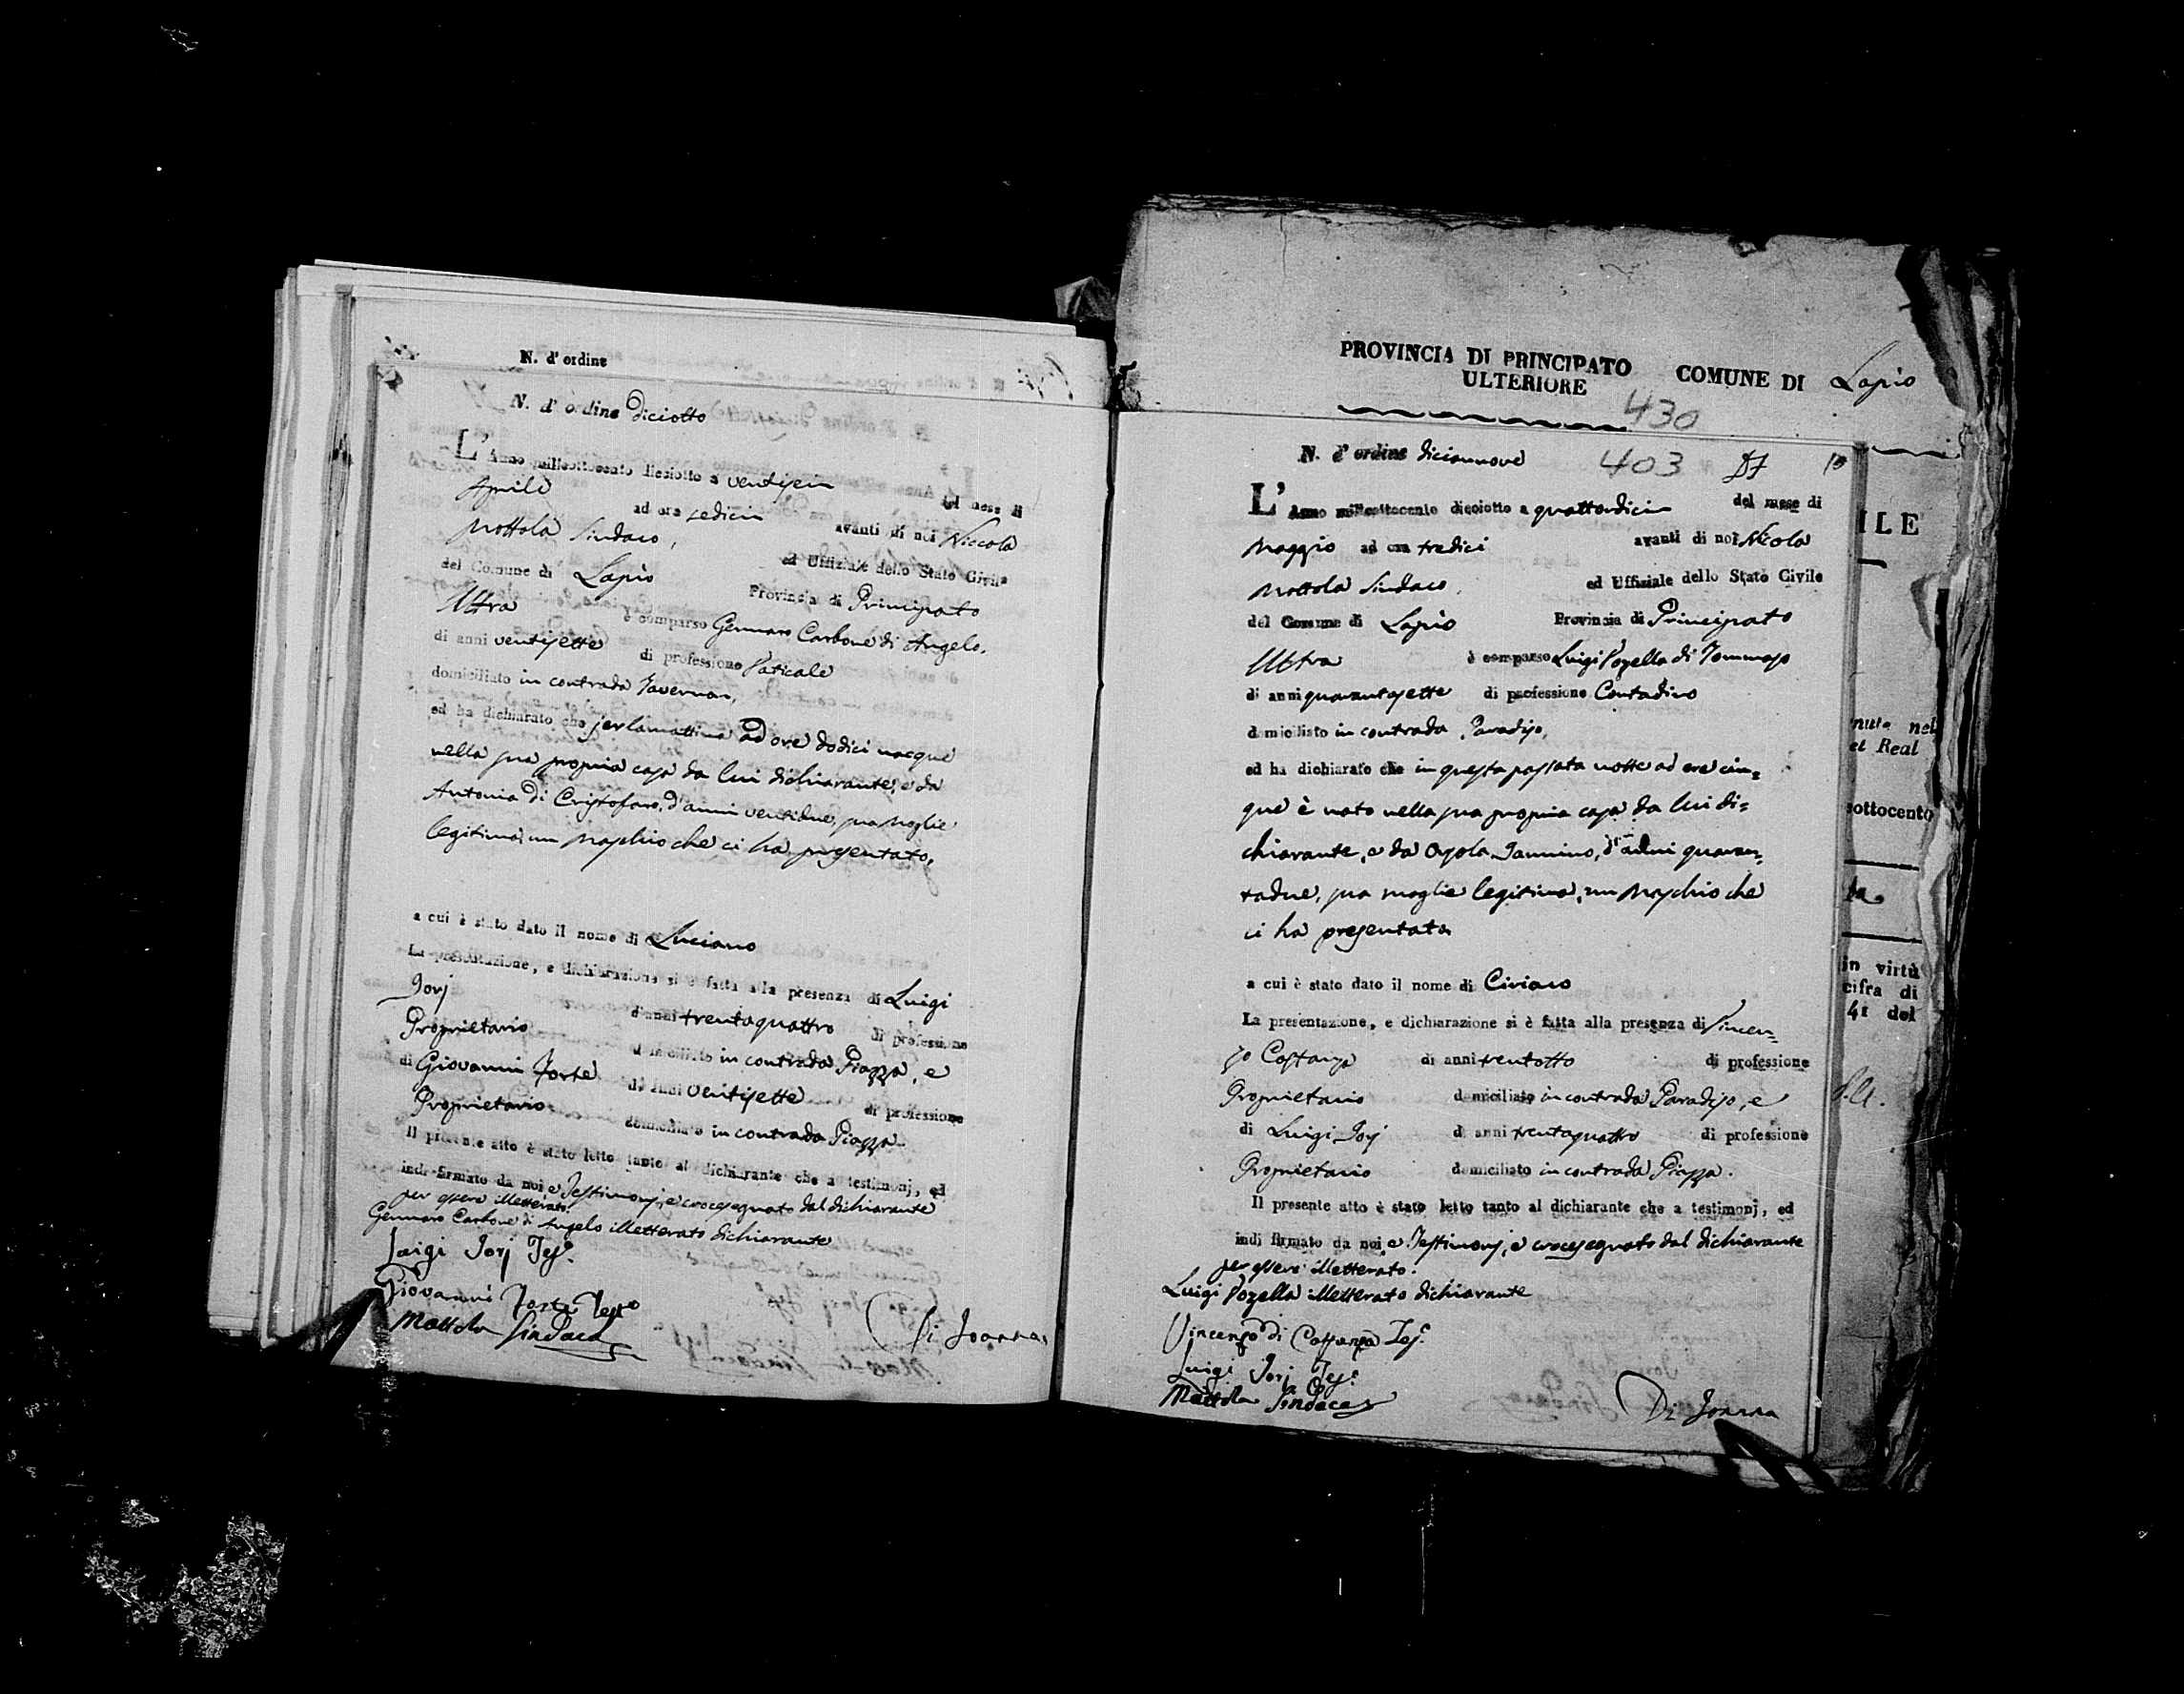 N. d' ordine
N. d' ordine diciotto
L' Anno milleottocento dieciotto a ventisei del mese di
Aprile ad ora sedici avanti di noi Niccola
Mottola Sindaco, ed Uffiziale dello Stato Civile
del Comune di Lapio Provincia di Principato
Ultra è comparso Gennaro Carbone di Angelo,
di anni ventisette di professione Vaticale
domiciliato in contrada Taverna,
ed ha dichiarato che jer la mattina ad ore dodici nacque
nella sua propria casa da lui dichiarante, e da
Antonia di Cristofaro, d'anni ventidue, sua moglie
legitima, un maschio che ci ha presentato,
a cui è stato dato il nome di Luciano
La presentazione, e dichiarazione si è fatta alla presenza di Luigi
Iorj d'anni trentaquattro di professione
Proprietario domiciliato in contrada Piazza, e
di Giovanni Forte di anni ventisette di professione
Proprietario domiciliato in contrada Piazza.
Il presente atto è stato letto tanto al dichiarante che a testimonj, ed
indi firmato da noi e Testimonj, e crocesegnato dal dichiarante
per essere illetterato.
Gennaro Carbone di Angelo illetterato dichiarante
Luigi Iorj Tes.e
Giovanni Forte Tes.o
Mottola Sindaco
Di Joanna
PROVINCIA DI PRINCIPATO ULTERIORE COMUNE DI Lapio
430
N. d' ordine diciannove 403
L' Anno milleottocento dieciotto a quattordici del mese di
Maggio ad ora tredici avanti di noi Nicola
Mottola Sindaco, ed Uffiziale dello Stato Civile
del Comune di Lapio Provincia di Principato
Ultra è comparso Luigi Pozella di Tommaso
di anni quarantasette di professione Contadino
domiciliato in contrada Paradiso,
ed ha dichiarato che in questa passata notte ad ore cin=
que è nato nella sua propria casa da lui di=
chiarante, e da Orsola Iannino, d'anni quaran=
tadue, sua moglie legitima, un maschio che
ci ha presentato
a cui è stato dato il nome di Ciriaco
La presentazione, e dichiarazione si è fatta alla presenza di Vincen=
zo Costanza di anni trentotto di professione
Proprietario domiciliato in contrada Paradiso, e
di Luigi Iorj di anni trentaquattro di professione
Proprietario domiciliato in contrada Piazza.
Il presente atto è stato letto tanto al dichiarante che a testimonj, ed
indi firmato da noi, e Testimonj, e crocesegnato dal dichiarante
per essere illetterato.
Luigi Pozella illetterato dichiarante
Vincenzo di Costanza Tes.e
Luigi Iorj Tes.e
Mottola Sindaco
Di Joanna
ILE
nute nel
et Real
ottocento
in virtù
cifra di
41 del